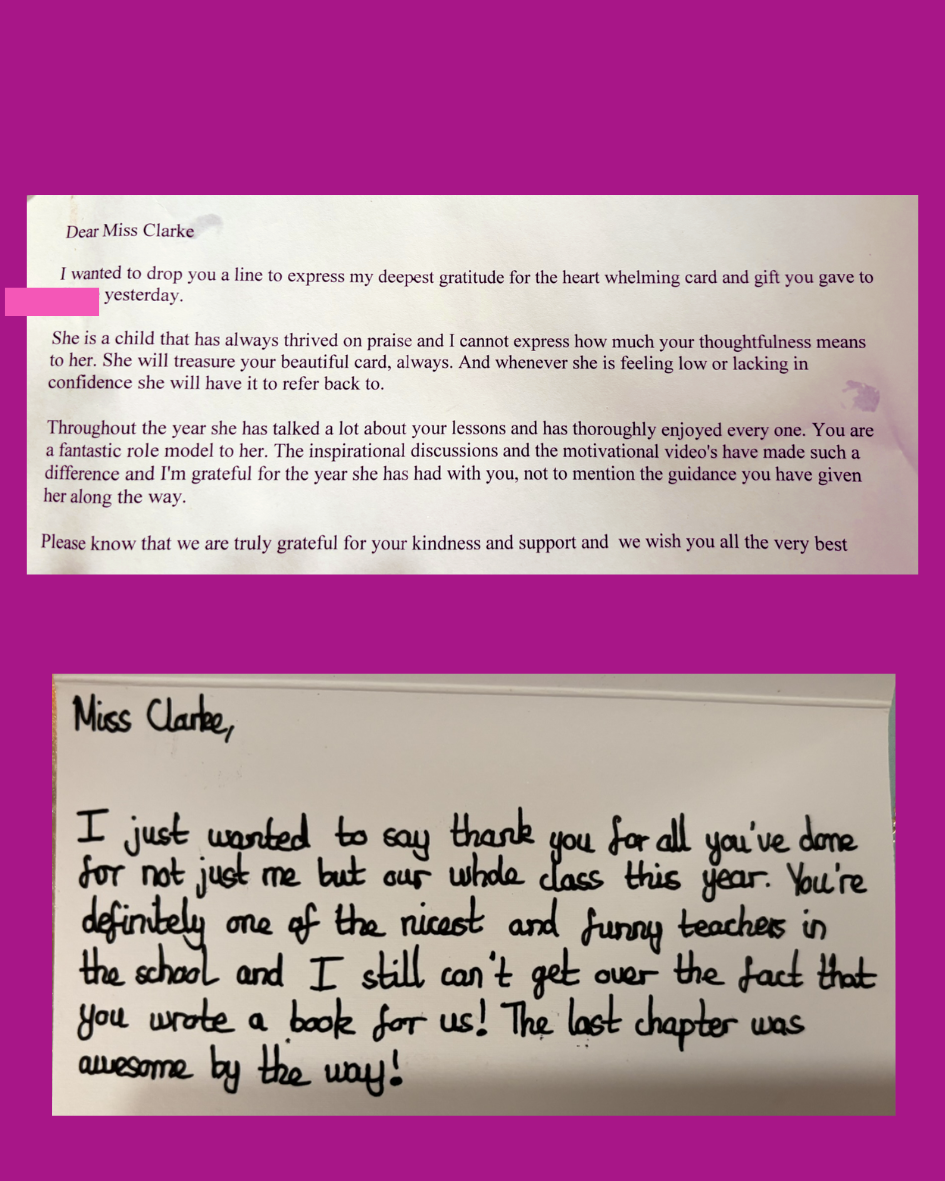 Dear Miss Clarke
I wanted to drop you a line to express my deepest gratitude for the heart whelming card and gift you gave to
yesterday.
She is a child that has always thrived on praise and I cannot express how much your thoughtfulness means
to her. She will treasure your beautiful card, always. And whenever she is feeling low or lacking in
confidence she will have it to refer back to.
Throughout the year she has talked a lot about your lessons and has thoroughly enjoyed every one. You are
a fantastic role model to her. The inspirational discussions and the motivational video's have made such a
difference and I'm grateful for the year she has had with you, not to mention the guidance you have given
her along the way.
Please know that we are truly grateful for your kindness and support and we wish you all the very best
Miss Clarke,
I just wanted to say thank you for all you've done
for not just me but our whole class this year. You're
definitely one of the nicest and funny teachers in
the school and I still can't get over the fact that
you wrote a book for us! The last chapter was
awesome by the way!